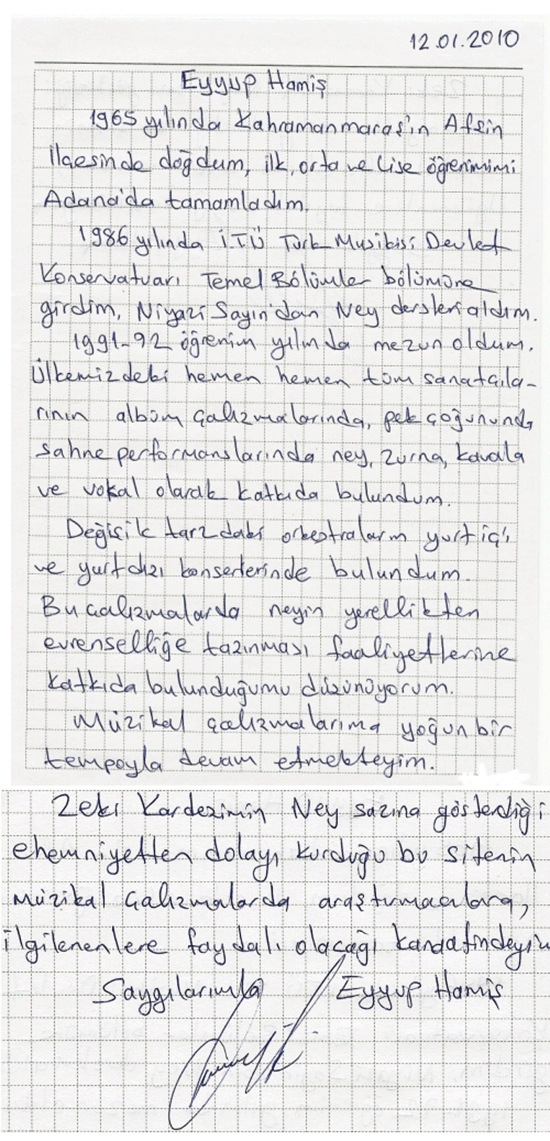 12.01.2010
Eyyup Hamiş
1965 yılında Kahramanmaraş'ın Afşin
ilçesinde doğdum, ilk, orta ve lise öğrenimimi
Adana'da tamamladım.
1986 yılında İTÜ Türk Musikisi Devlet
Konservatuarı Temel Bölümler bölümüne
girdim, Niyazi Sayın'dan Ney dersleri aldım.
1991-92 öğrenim yılında mezun oldum.
Ülkemizdeki hemen hemen tüm sanatçıla-
rının albüm çalışmalarında, pek çoğununda
sahne performanslarında ney, zurna, kavala
ve vokal olarak katkıda bulundum.
Değişik tarzdaki orkestraların yurtiçi
ve yurtdışı konserlerinde bulundum.
Bu çalışmalarda neyin yerellikten
evrenselliğe taşınması faaliyetlerine
katkıda bulunduğumu düşünüyorum.
Müzikal çalışmalarıma yoğun bir
tempoyla devam etmekteyim.
Zeki Kardeşimin Ney sazına gösterdiği
ehemniyetten dolayı kurduğu bu sitenin
müzikal çalışmalarda araştırmacılara,
ilgilenenlere faydalı olacağı kanaatindeyim
Saygılarımla Eyyup Hamiş